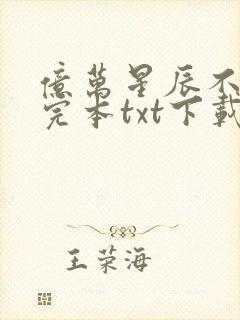 億萬星辰不
完本txt下載
王荣海